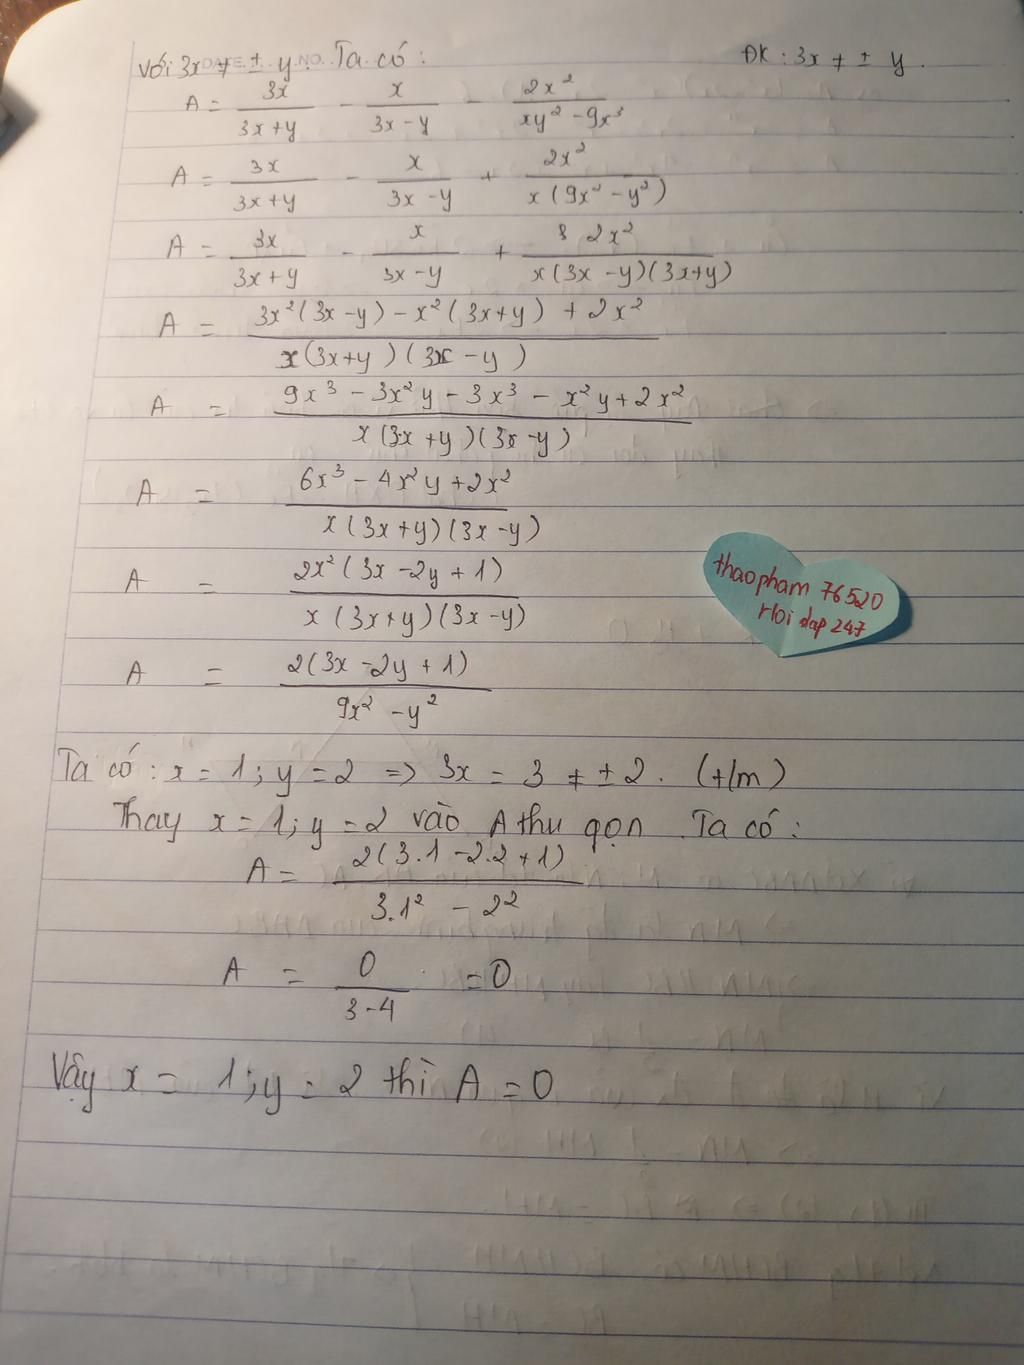 DATE. NO.
Với 3x ≠ ± y. Ta có: ĐK: 3x ≠ ± y.
A = 3x/(3x+y) - x/(3x-y) - 2x²/(xy²-9x³)
A = 3x/(3x+y) - x/(3x-y) + 2x²/(x(9x²-y²))
A = 3x/(3x+y) - x/(3x-y) + 2x²/(x(3x-y)(3x+y))
A = (3x²(3x-y) - x²(3x+y) + 2x²)/(x(3x+y)(3x-y))
A = (9x³ - 3x²y - 3x³ - x²y + 2x²)/(x(3x+y)(3x-y))
A = (6x³ - 4x²y + 2x²)/(x(3x+y)(3x-y))
A = 2x²(3x-2y+1)/(x(3x+y)(3x-y))
thaopham 76520
Hoi dap 247
A = 2(3x-2y+1)/(9x²-y²)
Ta có: x = 1; y = 2 => 3x = 3 ≠ ± 2. (t/m)
Thay x = 1; y = 2 vào A thu gọn. Ta có:
A = 2(3.1-2.2+1)/(3.1²-2²)
A = 0/(3-4) = 0
Vậy x = 1; y = 2 thì A = 0